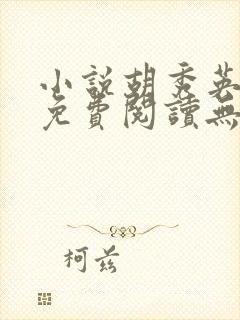 小說胡秀英
免費閱讀無
柯茲